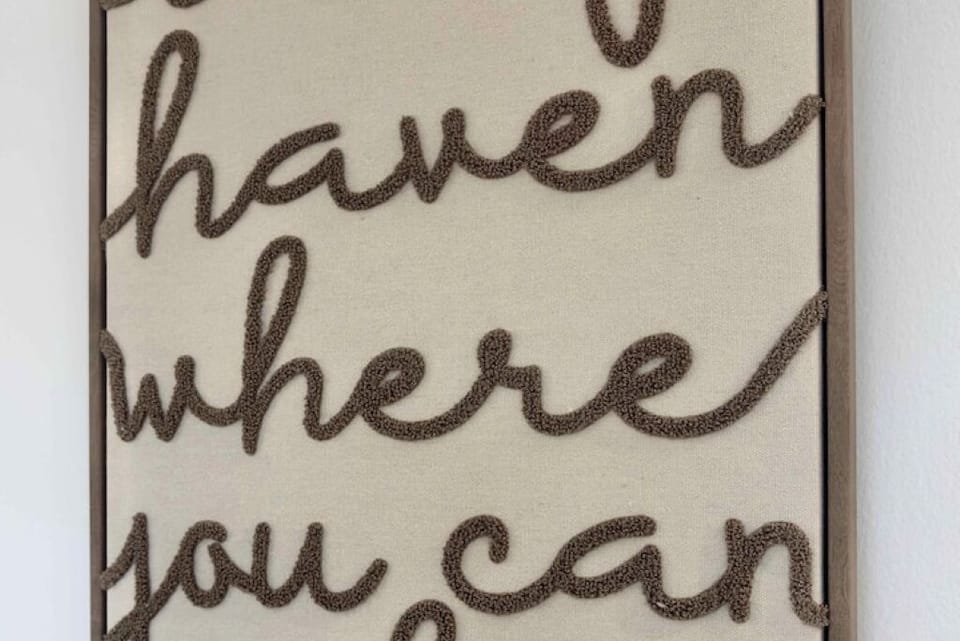 haven
where
you can